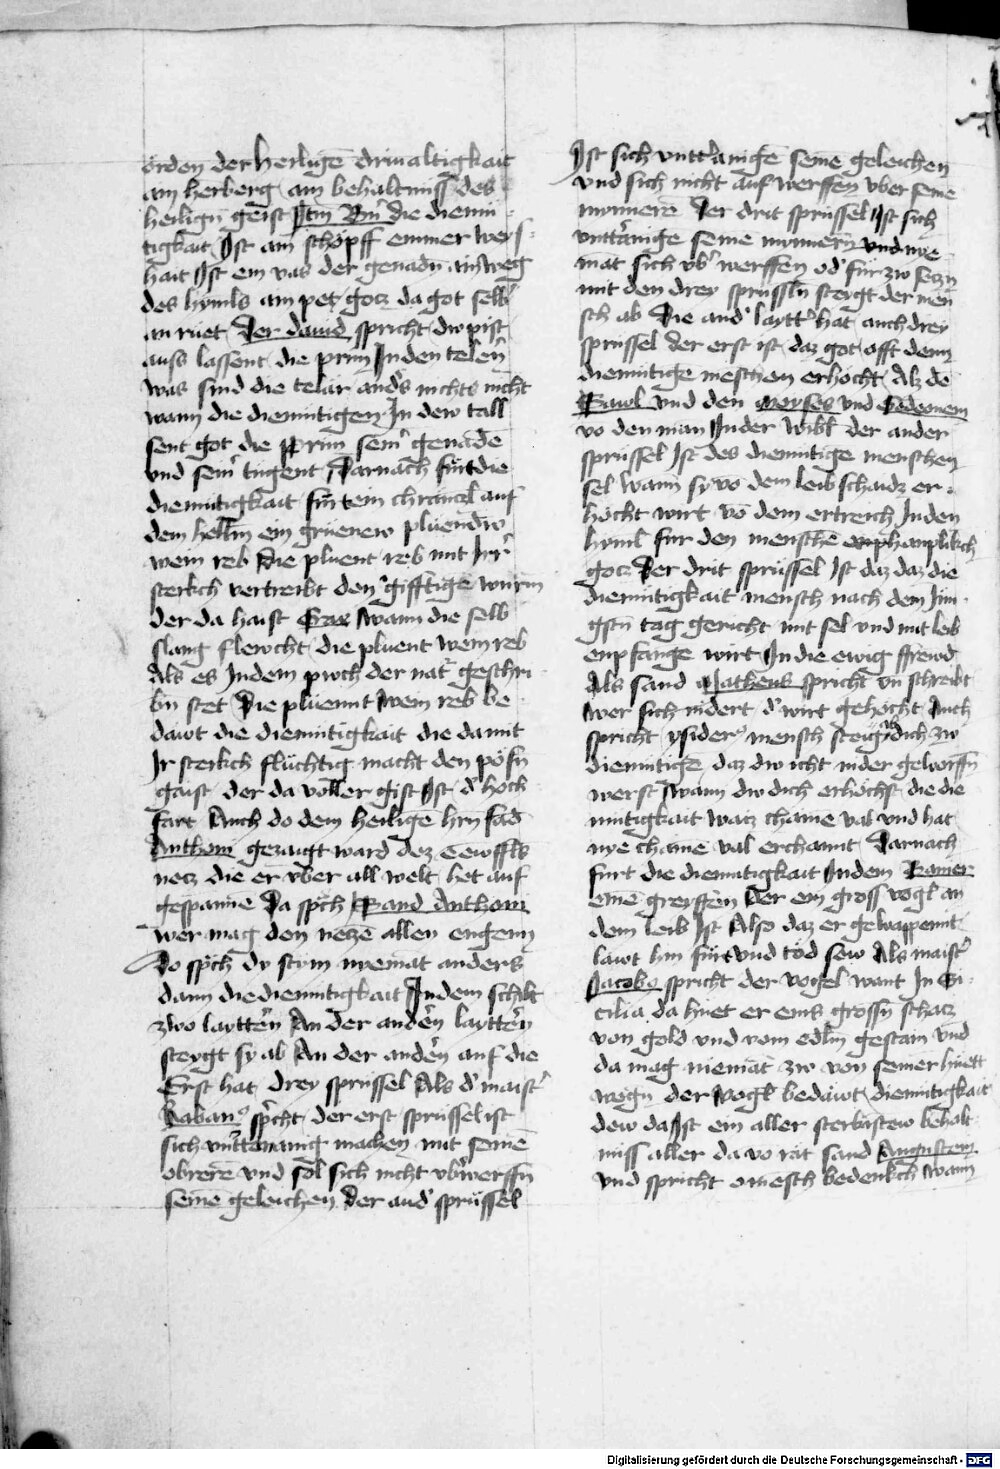 orden der heiligē driualtigkait
am herberg am behaltniss des
heiligñ geist Itm̄ Bm̄ die diemu
tigkait Ist am schöpff emmer weys
hait Ist ein vas der genadn̄ ain weg
des hymls am pet gotz da got selb'
an ruet Der dauid spricht dw pist
auss lassent die prün̄ Inden telen
was sind die telär and's nichts nicht
wann die diemutigen In dew tall
sent got die prün̄ sein' genade
vnd sein' tugent Darnach fürt die
diemutigkait fürt ein chrantzl auf
dem hellm̄ ein gruenew pluendw
wein reb die pluent reb mit Irr'
sterkch vertreibt den gifftigē wurm
der da haist wann die selb
slang flewcht die pluent wein reb
Als es Indem pwch der nat' geschri
bn̄ stet Die pluennt wein reb be
dawt die diemutigkait die damit
Ir sterkch flüchtig macht den pösn̄
gaist der da voller gift Ist d' hoch
fart Auch do dem heiligē hrn̄ sand
Anthoni gezaigt ward dez tewffls
netz die er vber all welt het auf
gespannē Da spch Sand Anthoni
wer mag den netzē allen engenn
Do spch dy stym nyemat anders
dann die diemutigkait Indem schilt
zwo laytten An der anden laytten
steygt sy ab An der anden auf die
Erst hat drey sprüssel Als d' maist'
Raban' spcht der erst sprüssel ist
sich vntterainig machen mit seinē
obrerē vnd sol sich nicht vbwerffn̄
seinē geleichen Der and' sprüssel
Ist sich vntt'anigē seinē geleichen
vnd sich nicht auf werffen vber seine
mynnerē Der drit sprüssel Ist sich
vnttänige seine mynnern̄ vnd nye
mat sich vb' werffen od' für zw setzn̄
mit den drey sprüssln̄ steygt der men
sch ab Die and' laytt' hat auch drey
sprüssel der erst ist daz got offt denn
diemutige meschen erhöcht Alz dē
Sawl vnd den moyses vnd Gedeonem
vo den man Inder wibl der ander
sprüssel Ist des diemutige menschen
sel wann sy vo dem leib schaidz er
höcht wirt vo dem ertreich Inden
hyml für den menschē
gotz Der drit sprüssel Ist daz daz die
diemutigkait mensch nach dem Jun
gstn̄ tag gericht mit sel vnd mit leib
enpfangē wirt In die ewig frewd
Als sand Matheus spricht vn̄ schreibt
wer sich nidert d' wirt gehöcht Auch
spricht ysider' mensch steyg dich zw
diemutigē daz dw icht nider geworffn̄
werst wann dw dich erhöchst die die
mutigkait watz chaine val vnd hat
nye chaine val erchannt Darnach
fürt die diemutigkait Indem Banier
einē greyffen Der ein gross vogl an
dem leib Ist Also daz er gewappennt
lawt hin fürt vnd tod sew Als maist'
Jacobo spricht der vogel want In Si
cilia da huet er eins grossn̄ schatz
von gold vnd vom edlm̄ gestain vnd
da mag niemat zw von seiner huett
wegn̄ der vogl bedawt diemutigkait
dew da Ist ein aller sterkistew behalt
niss aller da vo rat sand Augustein
vnd spricht o mesch bedenkch wann
Digitalisierung gefördert durch die Deutsche Forschungsgemeinschaft - DFG